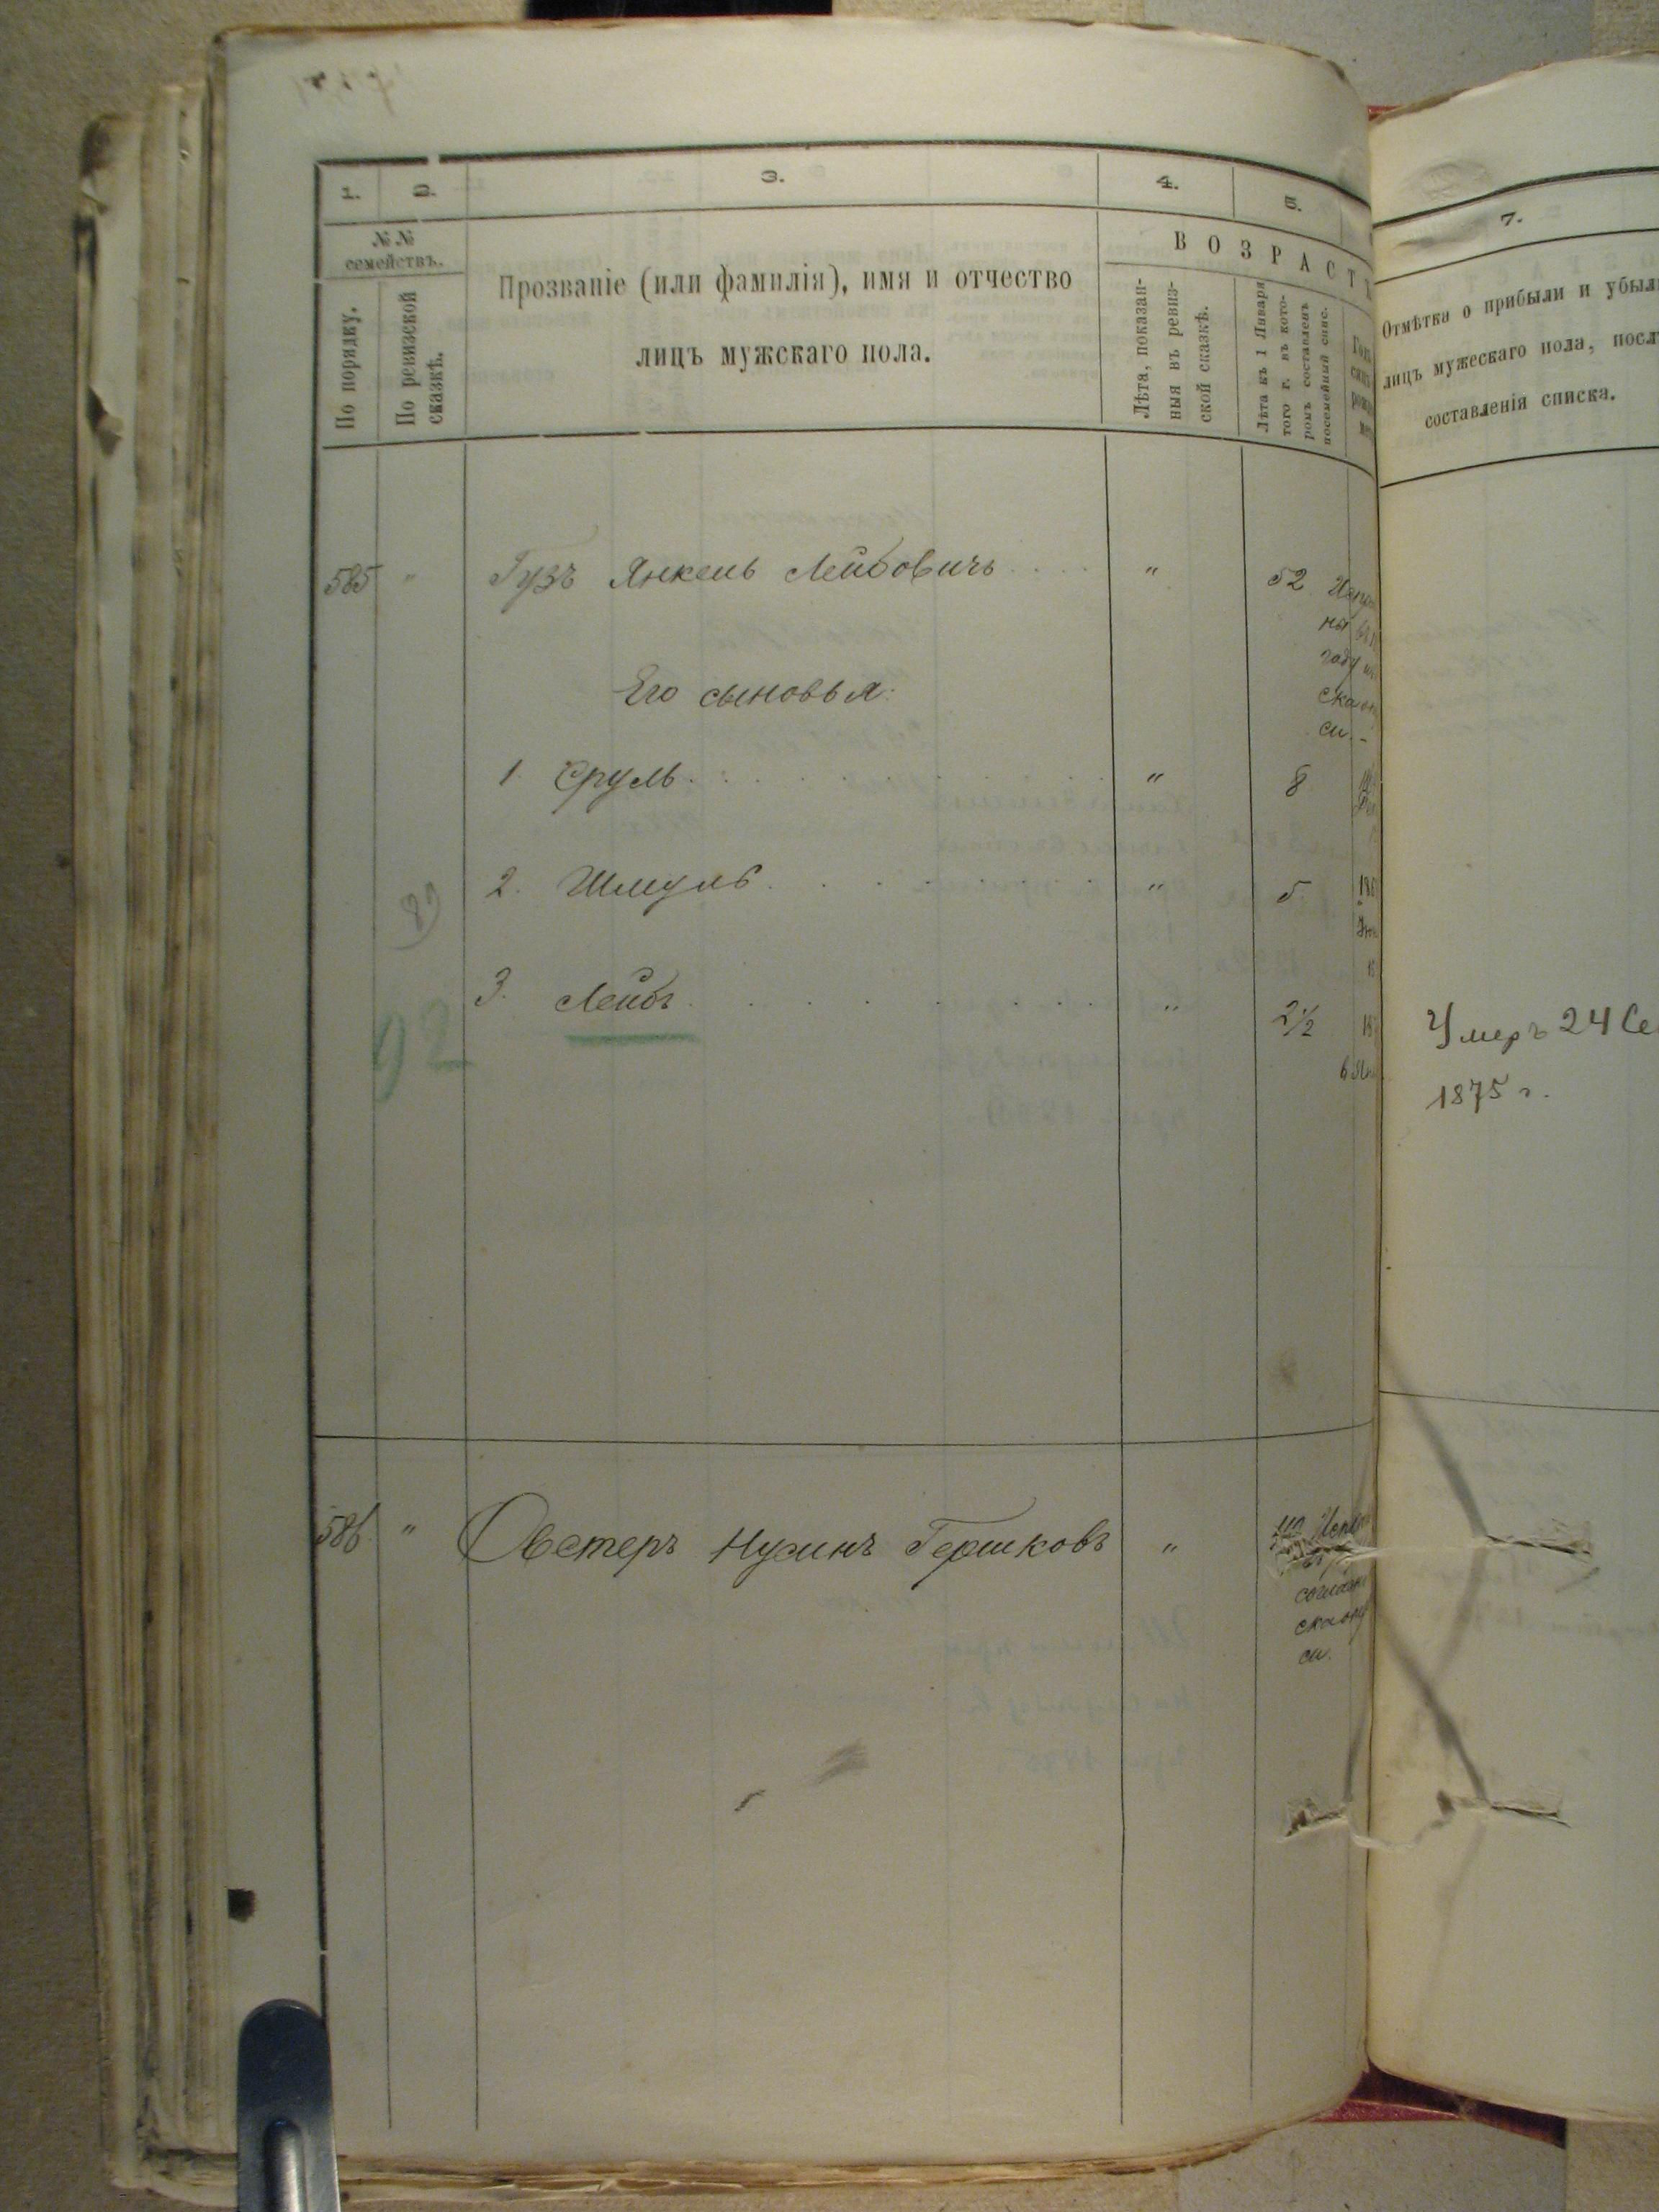 1. 2. 3. 4. 5. 7.
№ № семействъ.
По порядку.
По ревизской сказкѣ.
Прозваніе (или фамилія), имя и отчество
лицъ мужскаго пола.
ВОЗРАСТ
Лѣта, показан-
ныя въ ревиз-
ской сказкѣ.
Лѣта къ 1 Января
того г. въ кото-
ромъ составленъ
посемейный спис.
Отмѣтка о прибыли и убыли
лицъ мужескаго пола, посл
составленія списка.
585 " Гузъ Янкель Лейбовичъ . . . . " 52
Его сыновья:
1. Сруль . . . . " 8
2. Шмуль . . . . " 5
3. Лейбъ . . . . " 2½
92
Умеръ 24 Се
1875 г.
586 " Овстеръ Нусинъ Гершковъ "